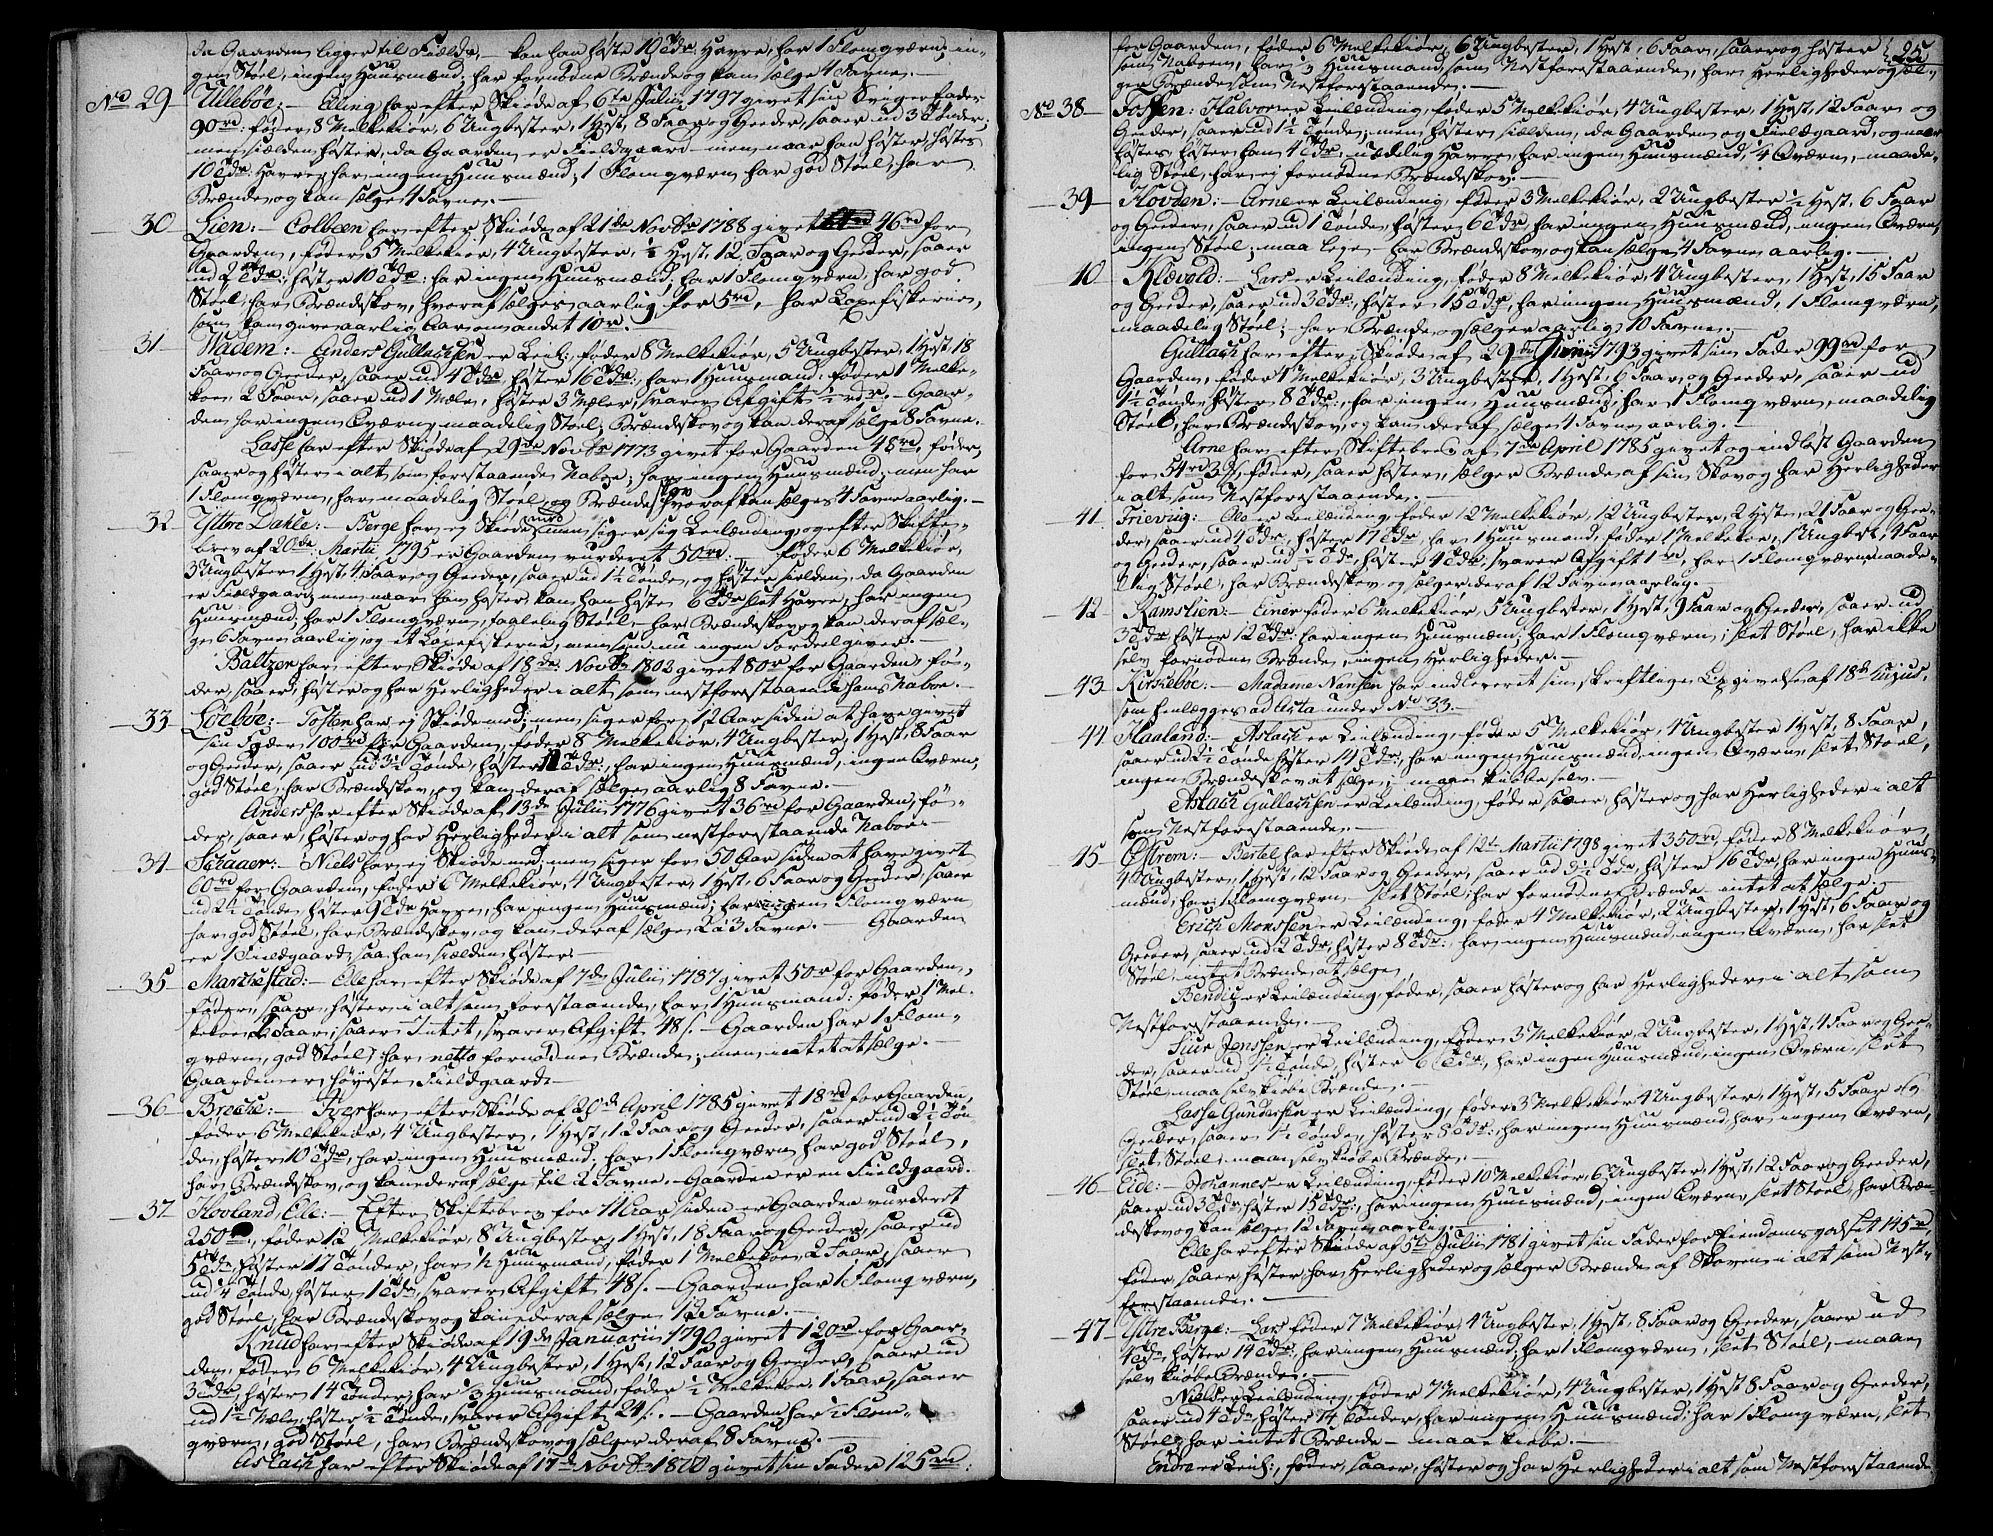 da Gaarden ligger til Fields, – kan han höste 10 Tdr Havre, har 1 Flomqværn, in-
gen Stöel, ingen Huusmænd, har fornødne Brænde og kan sælge 4 Favne. –
No 29 Ullebøe: – Elling har efter Skiöde af 6te Julii 1797 givet sin Svigerfader
90rd: föder 8 Melkekiör, 6 Ungbester, 1 Hest, 8 Faar og Geeder, saaer ud 3 Tönder;
men sielden höster, da Gaarden er Fieldgaard – men naar han höster, höstes
10 Tdr Havre, har ingen Huusmænd, 1 Flomqværn, har god Stöel, har
Brænde, og kan sælge 4 Favne. –
30 Lien: – Colbeen har efter Skiöde af 21de Novbr 1788 givet 46rd for
Gaarden, föder 5 Melkekiör, 4 Ungbester, ½ Hest, 12 Faar og Geeder, saaer
ud 2 Tdr: höster 10 Tdr: har ingen Huusmænd, har 1 Flomqværn, har god
Stöel, har Brændeskov, hvoraf sælges aarlig for 5rd, har Laxefiskerie,
som kan give aarlig Aar om andet 1 ort. –
31 Wadem: – Anders Gullachsen er Leil: föder 8 Melkekiör, 5 Ungbester, 1 Hest, 18
Faar og Geeder, saaer ud 4 Tdr, höster 16 Tdr: har 1 Huusmand: föder 1 Melke-
koe, 2 Faar, saaer ud 1 Mæle, höster 3 Mæler, svarer Afgift ½ rdr. – Gaar-
den har ingen Qværn, maadelig Stöel, Brændeskov og kan deraf sælge 8 Favne.
Lasse har efter Skiöde af 29de Novbr 1773 givet for Gaarden 48rd, föder,
saaer og höster i alt som forestaaende Naboe; har ingen Huusmænd; men har
1 Flomqværn, har maadelig Stöel, og Brændeskov, hvoraf kan sælges 4 Favne aarlig. –
32 Ystre Dahle: – Berge har ej Skiöde med, men siger sig Leilænding, og efter Skifte-
brev af 20de Martii 1795 er Gaarden vurderet 50rd: – föder 6 Melkekiör,
3 Ungbester, 1 Hest, 4 Faar og Geeder, saaer ud 1½ Tönde, og höster sielden, da Gaarden
er Fieldgaard, men naar han höster, kan han höste 6 Tdr slet Havre, har ingen
Huusmænd, har 1 Flomqværn, taalelig Stöel, har Brændeskov og kan deraf sæl-
ge 6 Favne aarlig, og et Laxefiskerie, men som nu ingen Fordeel giver. –
Baltzer har efter Skiöde af 18de Novbr 1803 givet 80r for Gaarden, fö-
der, saaer, höster og har Herligheder i alt som nestforestaaende hans Naboe. –
33 Löebøe: – Tosten har ej Skiöde med; men siger for 12 Aar siden at have givet
sin Fader 100rd for Gaarden, föder 8 Melkekiör, 4 Ungbester, 1 Hest, 8 Faar
og Geeder, saaer ud 3½ Tönde, höster 11 Tdr:, har ingen Huusmænd, ingen Qværn,
god Stöel, har Brændeskov, og kan deraf sælge aarlig 8 Favne. –
Anders har efter Skiöde af 13de Julii 1776 givet 36rd for Gaarden, fö-
der, saaer, höster og har Herligheder i alt som nestforestaaende Naboe. –
34 Schaaer: – Niels har ej Skiöde med, men siger for 50 Aar siden at have givet
60rd for Gaarden, föder 6 Melkekiör, 4 Ungbester, 1 Hest, 6 Faar og Geeder, saaer
ud 2½ Tönde, höster 9 Tdr Havre, har ingen Huusmænd; har ingen Flomqværn
har god Stöel, har Brændeskov, og kan deraf sælge 2 à 3 Favne. – Gaarden
er 1 Fieldgaard, saa han sielden höster. –
35 Marchestad: – Ole har efter Skiöde af 7de Julii 1787 givet 50r for Gaarden,
föder, saaer, höster i alt som forestaaende, har 1 Huusmand: föder 1 Mel-
kekoe, 2 Faar, saaer Intet, svarer Afgift 48 s. – Gaarden har 1 Flom-
qværn, god Stöel, har netto fornødne Brænde; men intet at sælge. –
Gaarden er höyeste Fieldgaard. –
36 Breche: – Iver har efter Skiöde af 20de April 1785 givet 18rd for Gaarden,
föder 6 Melkekiör, 4 Ungbester, 1 Hest, 12 Faar og Geeder, saaer ud 2½ Tön-
de, höster 10 Tdr, har ingen Huusmænd, har 1 Flomqværn, har god Stöel,
har Brændeskov, og kan deraf sælge til 2 Favne. – Gaarden er en Fieldgaard.
37 Hovland, Elle: – Efter Skiftebrev for 11 Aar siden er Gaarden vurderet
250rd, föder 12 Melkekiör, 8 Ungbester, 1 Hest, 18 Faar og Geeder, saaer ud
5 Tdr, höster 17 Tönder, har ½ Huusmand, föder 1 Melkekoe, 2 Faar, saaer
ud ¼ Tönde, höster 1 Tdr, svarer Afgift 48 s. – Gaarden har 1 Flomqværn,
god Stöel, har Brændeskov og kan deraf sælge 12 Favne. –
Knud har efter Skiöde af 19de Januarii 1790 givet 120r for Gaar-
den, föder 6 Melkekiör, 4 Ungbester, 1 Hest, 12 Faar og Geeder, saaer ud
3 Tdr, höster 14 Tönder, har ½ Huusmand, föder ½ Melkekoe, 1 Faar, saaer
ud 1½ Mæle, höster ½ Tönde, svarer Afgift 24 s. – Gaarden har ½ Flom-
qværn, god Stöel, har Brændeskov og sælger deraf 8 Favne. –
Aslach har efter Skiöde af 17de Novbr 1800 givet sin Fader 125rd:
for Gaarden, föder 6 Melkekiör, 6 Ungbester, 1 Hest, 6 Faar, saaer og höster 25
som Naboen, har ½ Huusmand som Nestforestaaende, har Herligheder og sæl-
ger Brænde som Nestforestaaende. –
No 38 Fossen: Halvor er Leilænding, föder 5 Melkekiör, 4 Ungbester, 1 Hest, 12 Faar og
Geeder, saaer ud 1½ Tönde; men höster sielden, da Gaarden og Fieldgaard, og naar
höstes, höster han 4 Tdr, ussælig Havre, har ingen Huusmænd, ¼ Qværn, maade-
lig Stöel, har ej fornødne Brændeskov. –
39 Hovden: – Arne er Leilænding, föder 3 Melkekiör, 2 Ungbester, ½ Hest, 6 Faar
og Geeder, saaer ud 1 Tönde, höster 6 Tdr, har ingen Huusmænd, ingen Qværn,
ingen Stöel; maa leye – har Brændeskov, og kan sælge 4 Favne aarlig. –
40 Klævold: – Lars er Leilænding, föder 8 Melkekiör, 4 Ungbester, 1 Hest, 15 Faar
og Geeder, saaer ud 3 Tdr:, höster 15 Tdr, har ingen Huusmænd, 1 Flomqværn,
maadelig Stöel; har Brænde og sælger aarlig 10 Favne. –
Gullach har efter Skiöde af 29de Junii 1793 givet sin Fader 99rd for
Gaarden, föder 4 Melkekiör, 3 Ungbester, 1 Hest, 6 Faar og Geeder, saaer ud
1½ Tönde, höster 8 Tdr:, har ingen Huusmænd; har 1 Flomqværn, maadelig
Stöel, har Brændeskov, og kan deraf sælge 4 Favne aarlig. –
Arne har efter Skiftebrev af 7de April 1785 givet og indløst Gaarden
for 54rd 3 s, föder, saaer, höster, sælger Brænde af sin Skov og har Herligheder
i alt som Nestforestaaende. –
41 Frievig: – Ole er Leilænding, föder 12 Melkekiör, 12 Ungbester, 2 Heste, 21 Faar og Gee-
der, saaer ud 4 Tdr, höster 17 Tdr, har 1 Huusmand, föder 1 Melkekoe, 1 Ungbest, 4 Faar
og Geeder, saaer ud ½ Tdr, höster 4 Tdr, svarer Afgift 1rd, har 1 Flomqværn, maade-
lig Stöel, har Brændeskov og sælger deraf 12 Favne aarlig. –
42 Ramslien: – Einer föder 6 Melkekiör, 5 Ungbester, 1 Hest, 9 Faar og Geeder, saaer ud
3 Tdr, höster 12 Tdr: har ingen Huusmænd; har 1 Flomqværn, slet Stöel, har ikke
selv fornødne Brænde, ingen Herligheder. –
43 Kirkebøe: – Madame Nansen har indleveret sin skriftlige Opgivelse af 18de hujus,
som henlægges ad Acta under No 33. –
44 Haaland: – Aslach er Leilænding, föder 5 Melkekiör, 4 Ungbester, 1 Hest, 8 Faar,
saaer ud 2½ Tönde, höster 14 Tdr:, har ingen Huusmænd, ingen Qværn, slet Stöel,
ingen Brændeskov at sælge; maae kiöbe selv. –
Aslach Gullachsen er Leilænding, föder, saaer, höster og har Herligheder i alt
som Nestforestaaende. –
45 Østrem: – Bertel har efter Skiöde af 12te Martii 1798 givet 350rd, föder 8 Melkekiör,
4 Ungbester, 1 Hest, 12 Faar og Geeder, saaer ud 3½ Tdr, höster 16 Tdr, har ingen Huus-
mænd, har 1 Flomqværn, slet Stöel, har fornødne Brænde – intet at sælge. –
Erich Monssen er Leilænding, föder 4 Melkekiör, 2 Ungbester, 1 Hest, 6 Faar og
Geeder, saaer ud 2 Tdr, höster 8 Tdr:, har ingen Huusmænd, ingen Qværn, har slet
Stöel, intet Brænde at sælge,
Bendix er Leilænding, föder, saaer, höster og har Herligheder i alt som
Nestforestaaende. –
Siur Jenssen er Leilænding, föder 3 Melkekiör, 2 Ungbester, 1 Hest, 4 Faar og Gee-
der, saaer ud 1½ Tönde, höster 6 Tdr, har ingen Huusmænd, ingen Qværn, slet
Stöel, maa selv kiöbe Brænde. –
Lasse Gundersen er Leilænding, föder 3 Melkekiör, 4 Ungbester, 1 Hest, 5 Faar og
Geeder, saaer 1½ Tönde, höster 8 Tdr:, har ingen Huusmænd, har ingen Qværn,
slet Stöel, maae selv kiöbe Brænde. –
46 Eide: – Johannes er Leilænding, föder 10 Melkekiör, 6 Ungbester, 1 Hest, 12 Faar og Geeder,
saaer ud 3 Tdr, höster 15 Tdr:, har ingen Huusmænd, ingen Qværn, slet Stöel, har Bræn-
deskov og kan sælge 12 Favne aarlig. –
Ole har efter Skiöde af 5te Julii 1781 givet sin Fader for Eiendomsgodset 145rd,
föder, saaer, höster, har Herligheder og sælger Brænde af Skoven i alt som Nest-
forestaaende. –
47 Ystre Berge: – Lars föder 7 Melkekiör, 4 Ungbester, 1 Hest, 8 Faar og Geeder, saaer ud
4 Tdr, höster 14 Tdr:, har ingen Huusmænd, har 1 Flomqværn, slet Stöel, maae
selv kiöbe Brænde. –
Niels er Leilænding, föder 7 Melkekiör, 4 Ungbester, 1 Hest, 8 Faar og Geeder,
saaer ud 4 Tdr, höster 14 Tönder, har ingen Huusmænd; har 1 Flomqværn, slet
Stöel, har intet Brænde – maae kiöbe. –
Endre er Leil:, föder, saaer, höster og har Herligheder i alt som Nestforestaaende